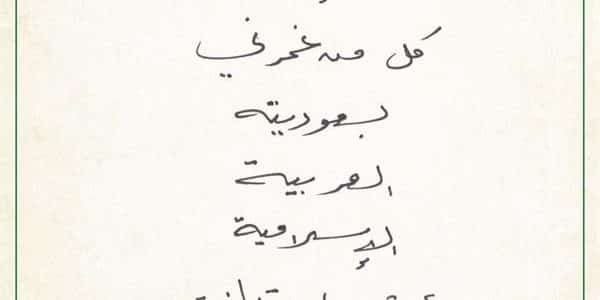 كل من غمرني
بسعوديته
العربية
الإسلامية